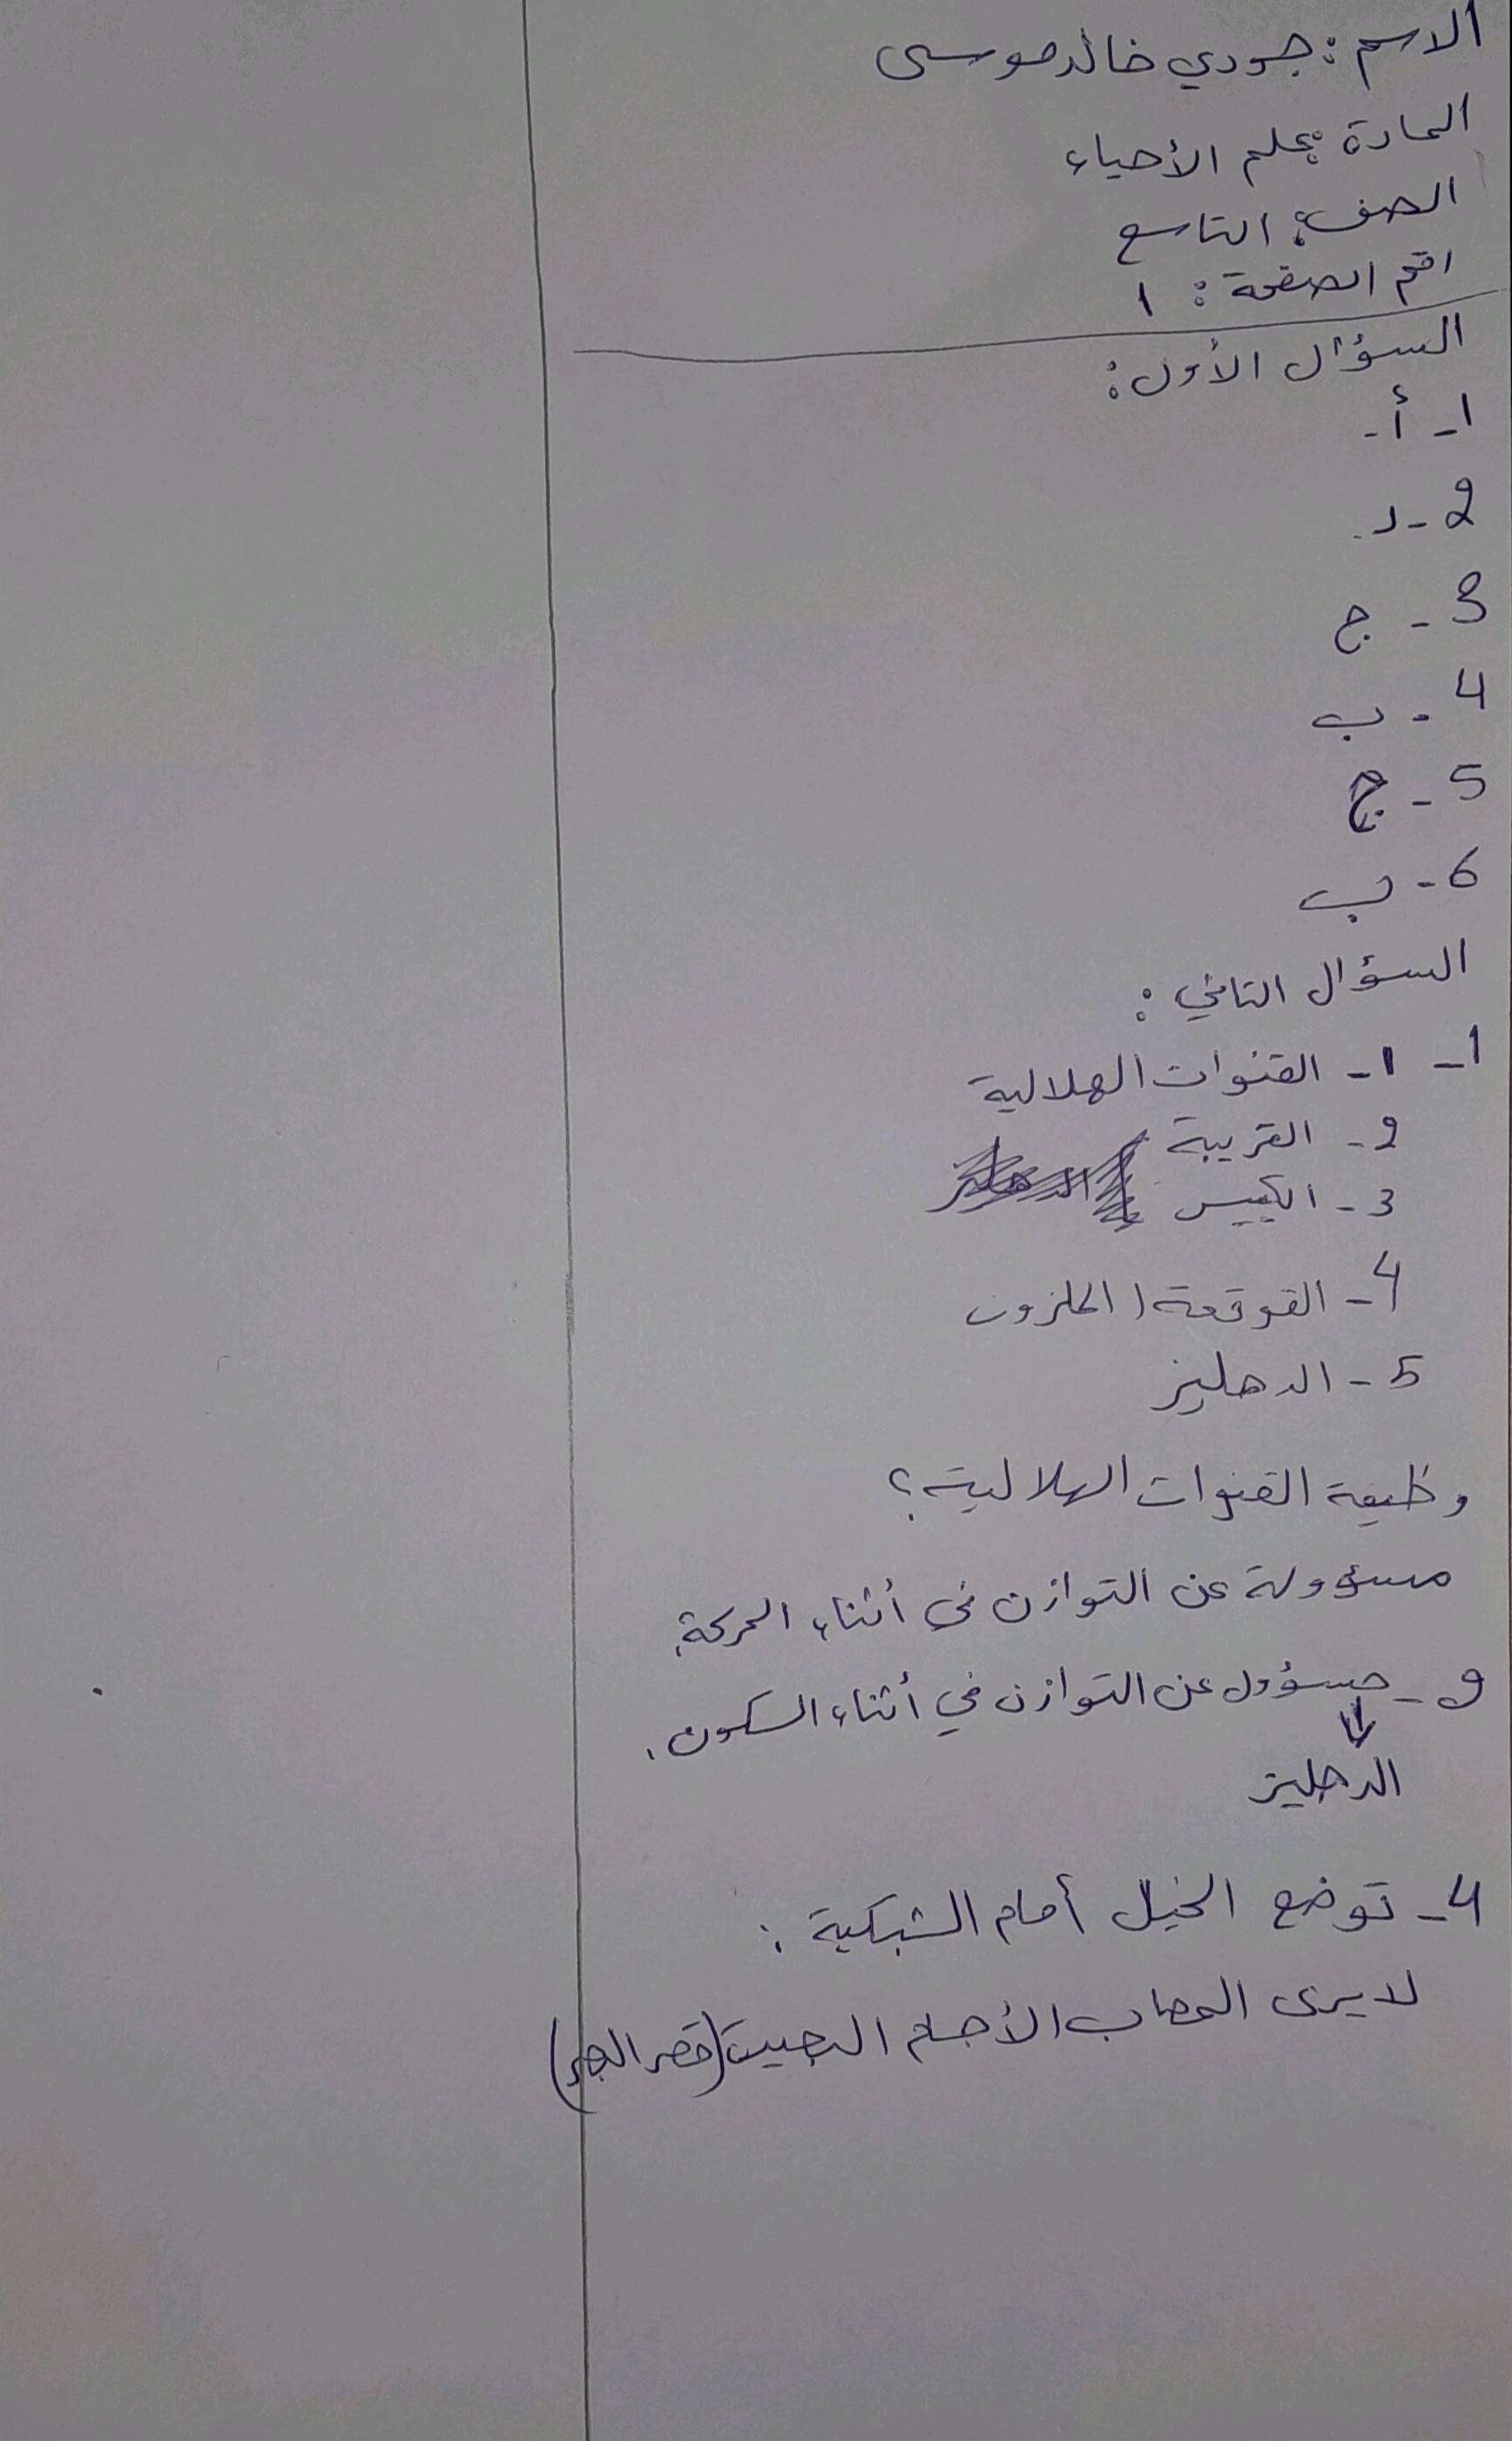 الاسم : جودي خالد موسى
المادة : علم الأحياء
الصف : التاسع
اقم الصفحة : ١
السؤال الأول :
١ - أ -
2 - د .
3 - ج
4 - ب
5 - ج
6 - ب
السؤال الثاني :
1 - 1 - القنوات الهلالية
2 - القريبة
3 - الكييس
4 - القوقعة ( الحلزون
5 - الدهليز
وظيفة القنوات الهلالية ؟
مسؤولة عن التوازن في أثناء الحركة .
2 - مسؤول عن التوازن في أثناء السكون .
↓
الدهليز
4 - توضع الخيال أمام الشبكية :
لا يرى المصاب الأجسام البعيدة (قصر البصر)